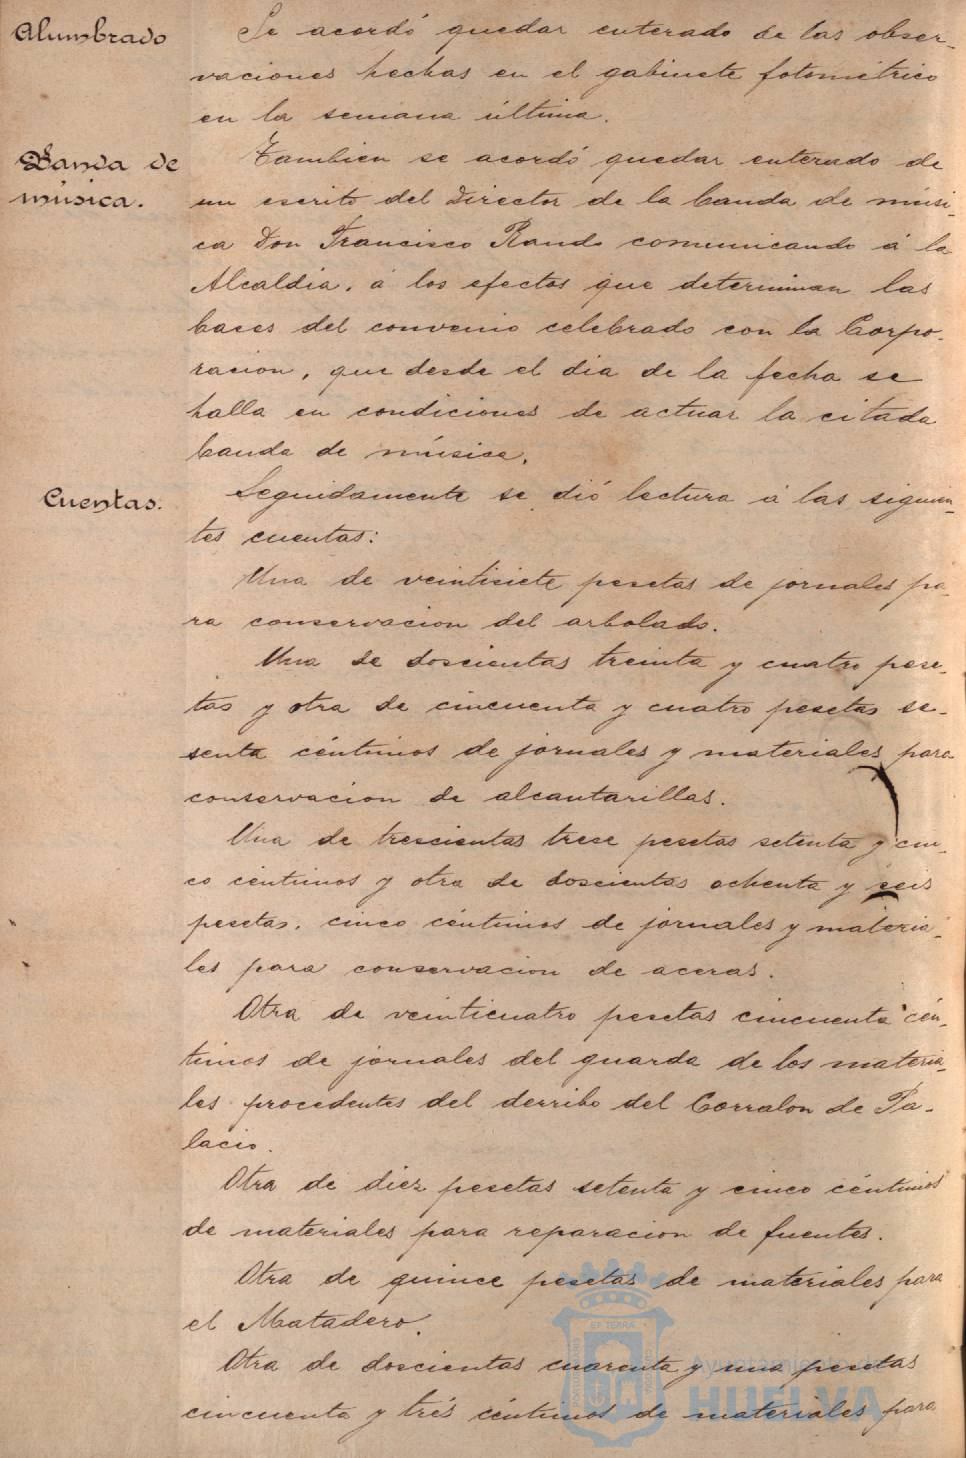 Alumbrado
Se acordó quedar enterado de las obser-
vaciones hechas en el gabinete fotométrico
en la semana última.
Banda de
música.
Tambien se acordó quedar enterado de
un escrito del Director de la banda de músi-
ca Don Francisco Rando comunicando á la
Alcaldia, á los efectos que determinan las
bases del convenio celebrado con la Corpo-
racion, que desde el dia de la fecha se
halla en condiciones de actuar la citada
banda de música.
Cuentas.
Seguidamente se dió lectura á las siguien-
tes cuentas:
Una de veintisiete pesetas de jornales pa-
ra conservacion del arbolado.
Una de doscientas treinta y cuatro pese-
tas y otra de cincuenta y cuatro pesetas se-
senta céntimos de jornales y materiales para
conservacion de alcantarillas.
Una de trescientas trece pesetas setenta y cin-
co centimos y otra de doscientas ochenta y seis
pesetas, cinco céntimos de jornales y materia-
les para conservacion de aceras.
Otra de veinticuatro pesetas cincuenta cén-
timos de jornales del guarda de los materia-
les procedentes del derribo del Corralon de Pa-
lacio.
Otra de diez pesetas setenta y cinco céntimos
de materiales para reparacion de fuentes.
Otra de quince pesetas de materiales para
el Matadero.
Otra de doscientas cuarenta y una pesetas
cincuenta y trés céntimos de materiales para
ET TERRA
Ayuntamiento de
HUELVA